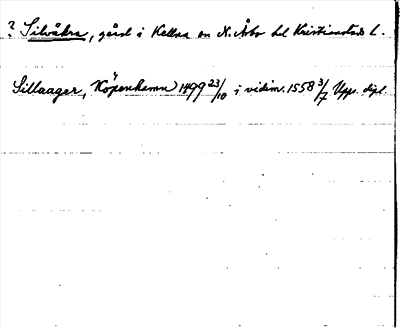 ? Silvåkra, gård i Kellna sn N. Åsbo hd Kristianstads l.
Sillaager, Köpenhamn 1499 23/10 i vidim. 1558 3/7 Upps. dipl.